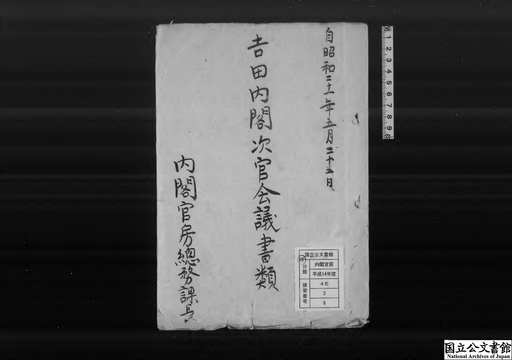 自昭和二十一年五月二十五日
吉田内閣次官会議書類
内閣官房總務課長
国立公文書館
分類
内閣官房
平成14年度
排架番号
4E
3
8
1 2 3 4 5 6 7 8 9
国立公文書館
National Archives of Japan